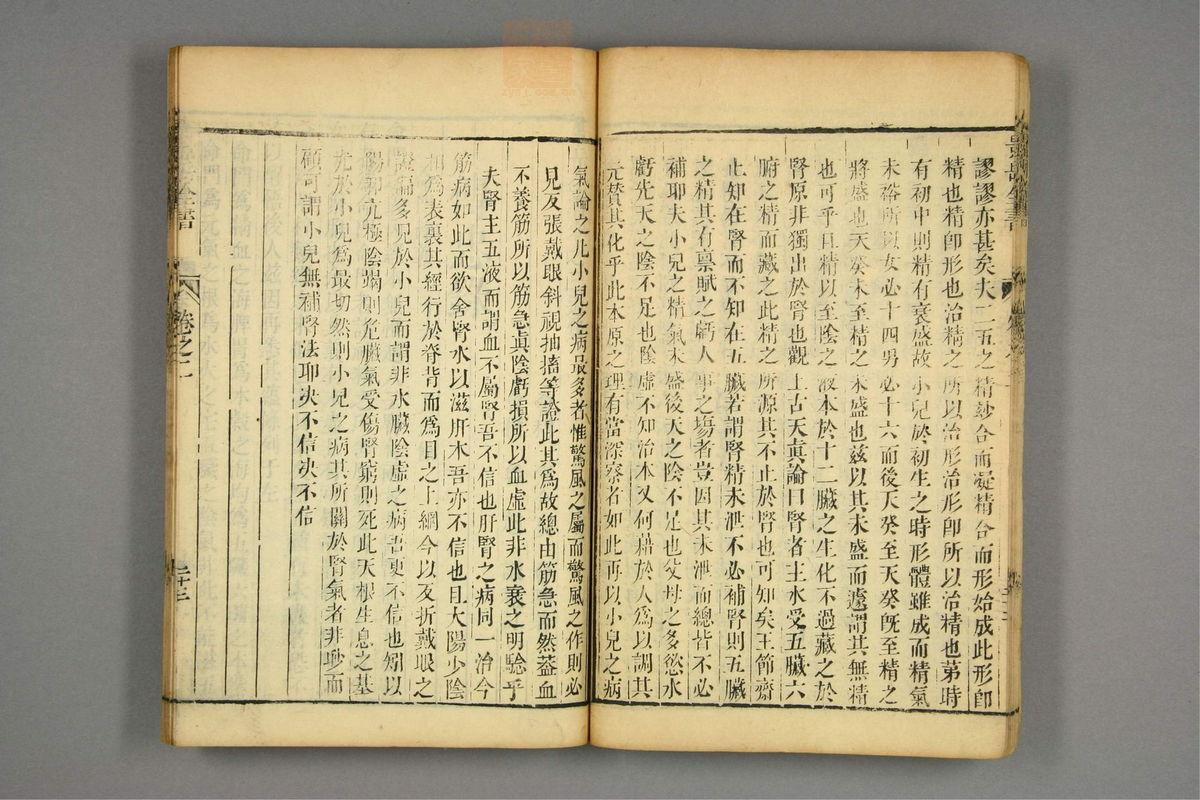 謬謬亦甚矣夫二五之精妙合而凝精合而形始成此形卽
精也精卽形也治精之所以治形治形卽所以治精也第時
有初中則精有衰盛故小兒於初生之時形體雖成而精氣
未裕所以女必十四男必十六而後天癸至天癸旣至精之
將盛也天癸未至精之未盛也茲以其未盛而遽謂其無精
也可乎且精以至陰之液本於十二臟之生化不過藏之於
腎原非獨出於腎也觀上古天眞論曰腎者主水受五臟六
腑之精而藏之此精之所源其不止於腎也可知矣王節齋
止知在腎而不知在五臟若謂腎精未泄不必補腎則五臟
之精其有禀賦之虧人事之場者豈因其未泄而總皆不必
補耶夫小兒之精氣未盛後天之陰不足也父母之多慾水
虧先天之陰不足也陰虛不知治本又何藉於人爲以調其
元贊其化乎此本原之理有當深察者如此再以小兒之病
氣論之凡小兒之病最多者惟驚風之屬而驚風之作則必
見反張戴眼斜視抽搐等證此其爲故總由筋急而然葢血
不養筋所以筋急眞陰虧損所以血虛此非水衰之明驗乎
夫腎主五液而謂血不屬腎吾不信也肝腎之病同一治今
筋病如此而欲舍腎水以滋肝木吾亦不信也且太陽少陰
相爲表裏其經行於脊背而爲目之上網今以反折戴眼之
證偏多見於小兒而謂非水臟陰虛之病吾更不信也矧以
陽邪亢極陰竭則危臟氣受傷腎窮則死此天根生息之基
尤於小兒爲最切然則小兒之病其所關於腎氣者非眇而
顧可謂小兒無補腎法耶決不信決不信
卷之二
二十三